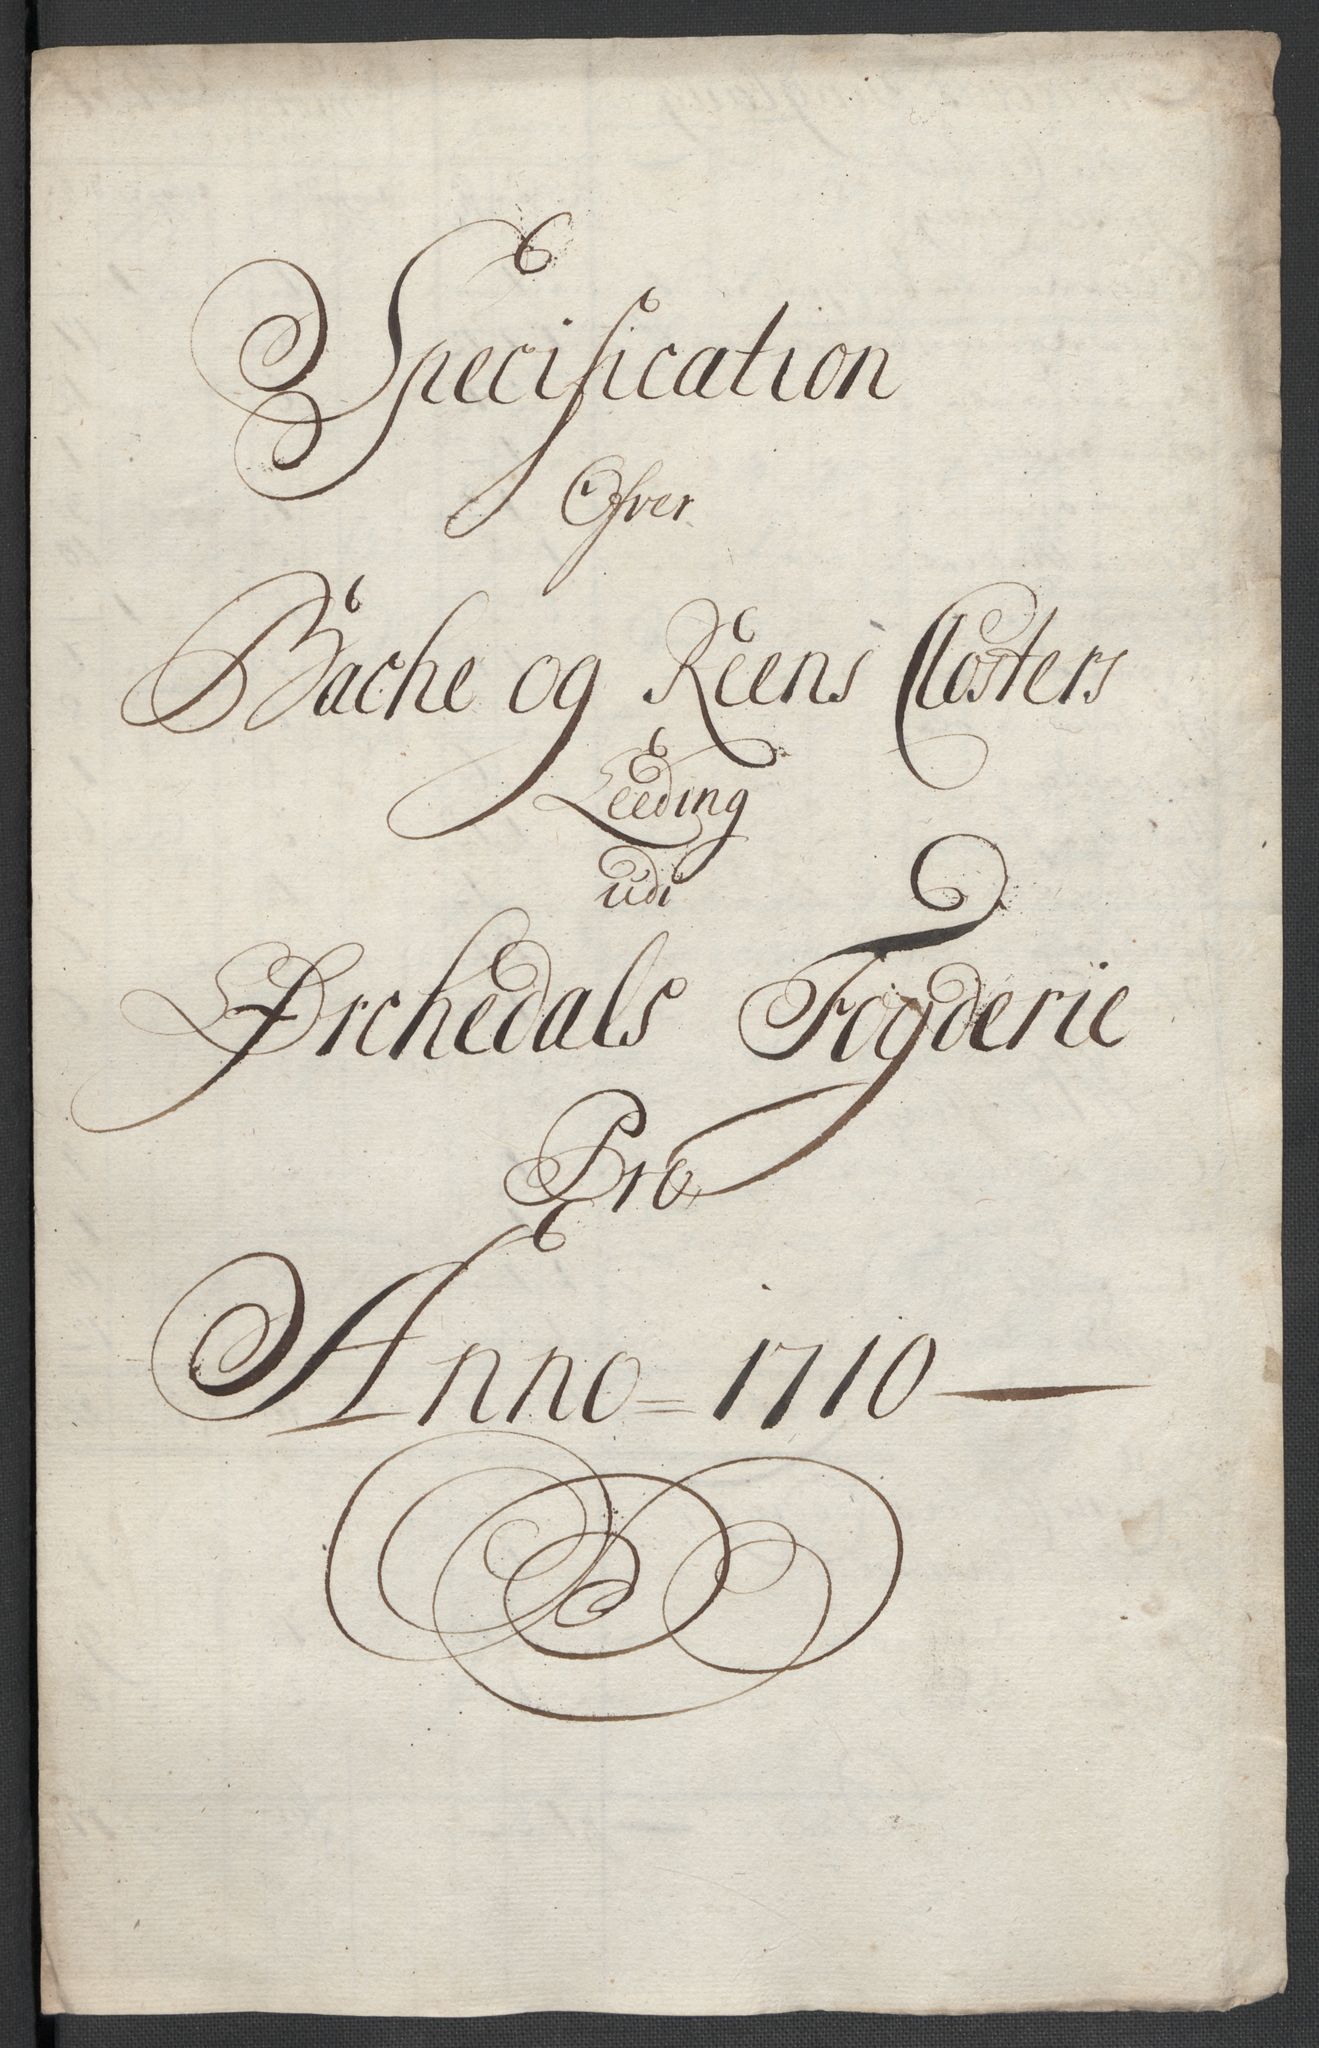 Specification
Ofver
Bache og Reens Closters
Leeding
udi
Ørchedals Fogderie
Pro
Anno = 1710 —